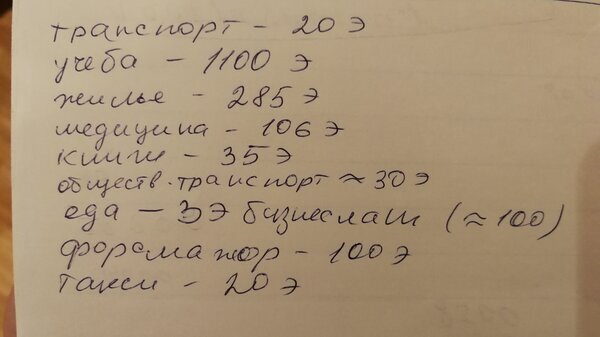 транспорт - 20 Э
учеба - 1100 Э
жилье - 285 Э
медицина - 106 Э
книги - 35 Э
обществ. транспорт ≈ 30 Э
еда - 3 Э бизнеслаш (≈ 100)
форсмажор - 100 Э
такси - 20 Э